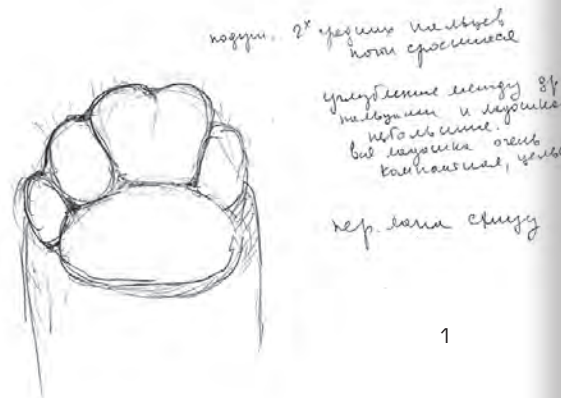 подуш. 2х средних пальцев
почти сросшиеся
углубление между др
пальцами и ладошкой
небольшие.
вся ладошка очень
компактная, цель
пер. лапа снизу
1